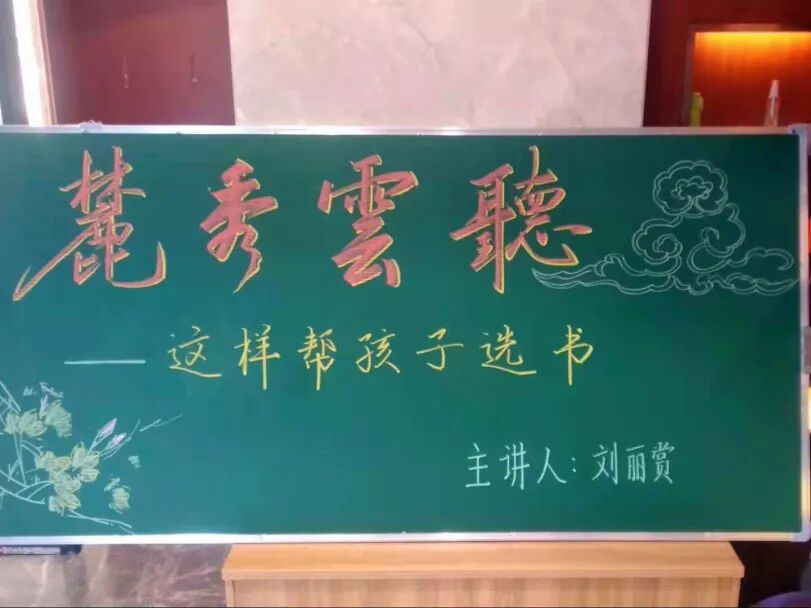 麓秀雲聽
——这样帮孩子选书
主讲人：刘丽赏